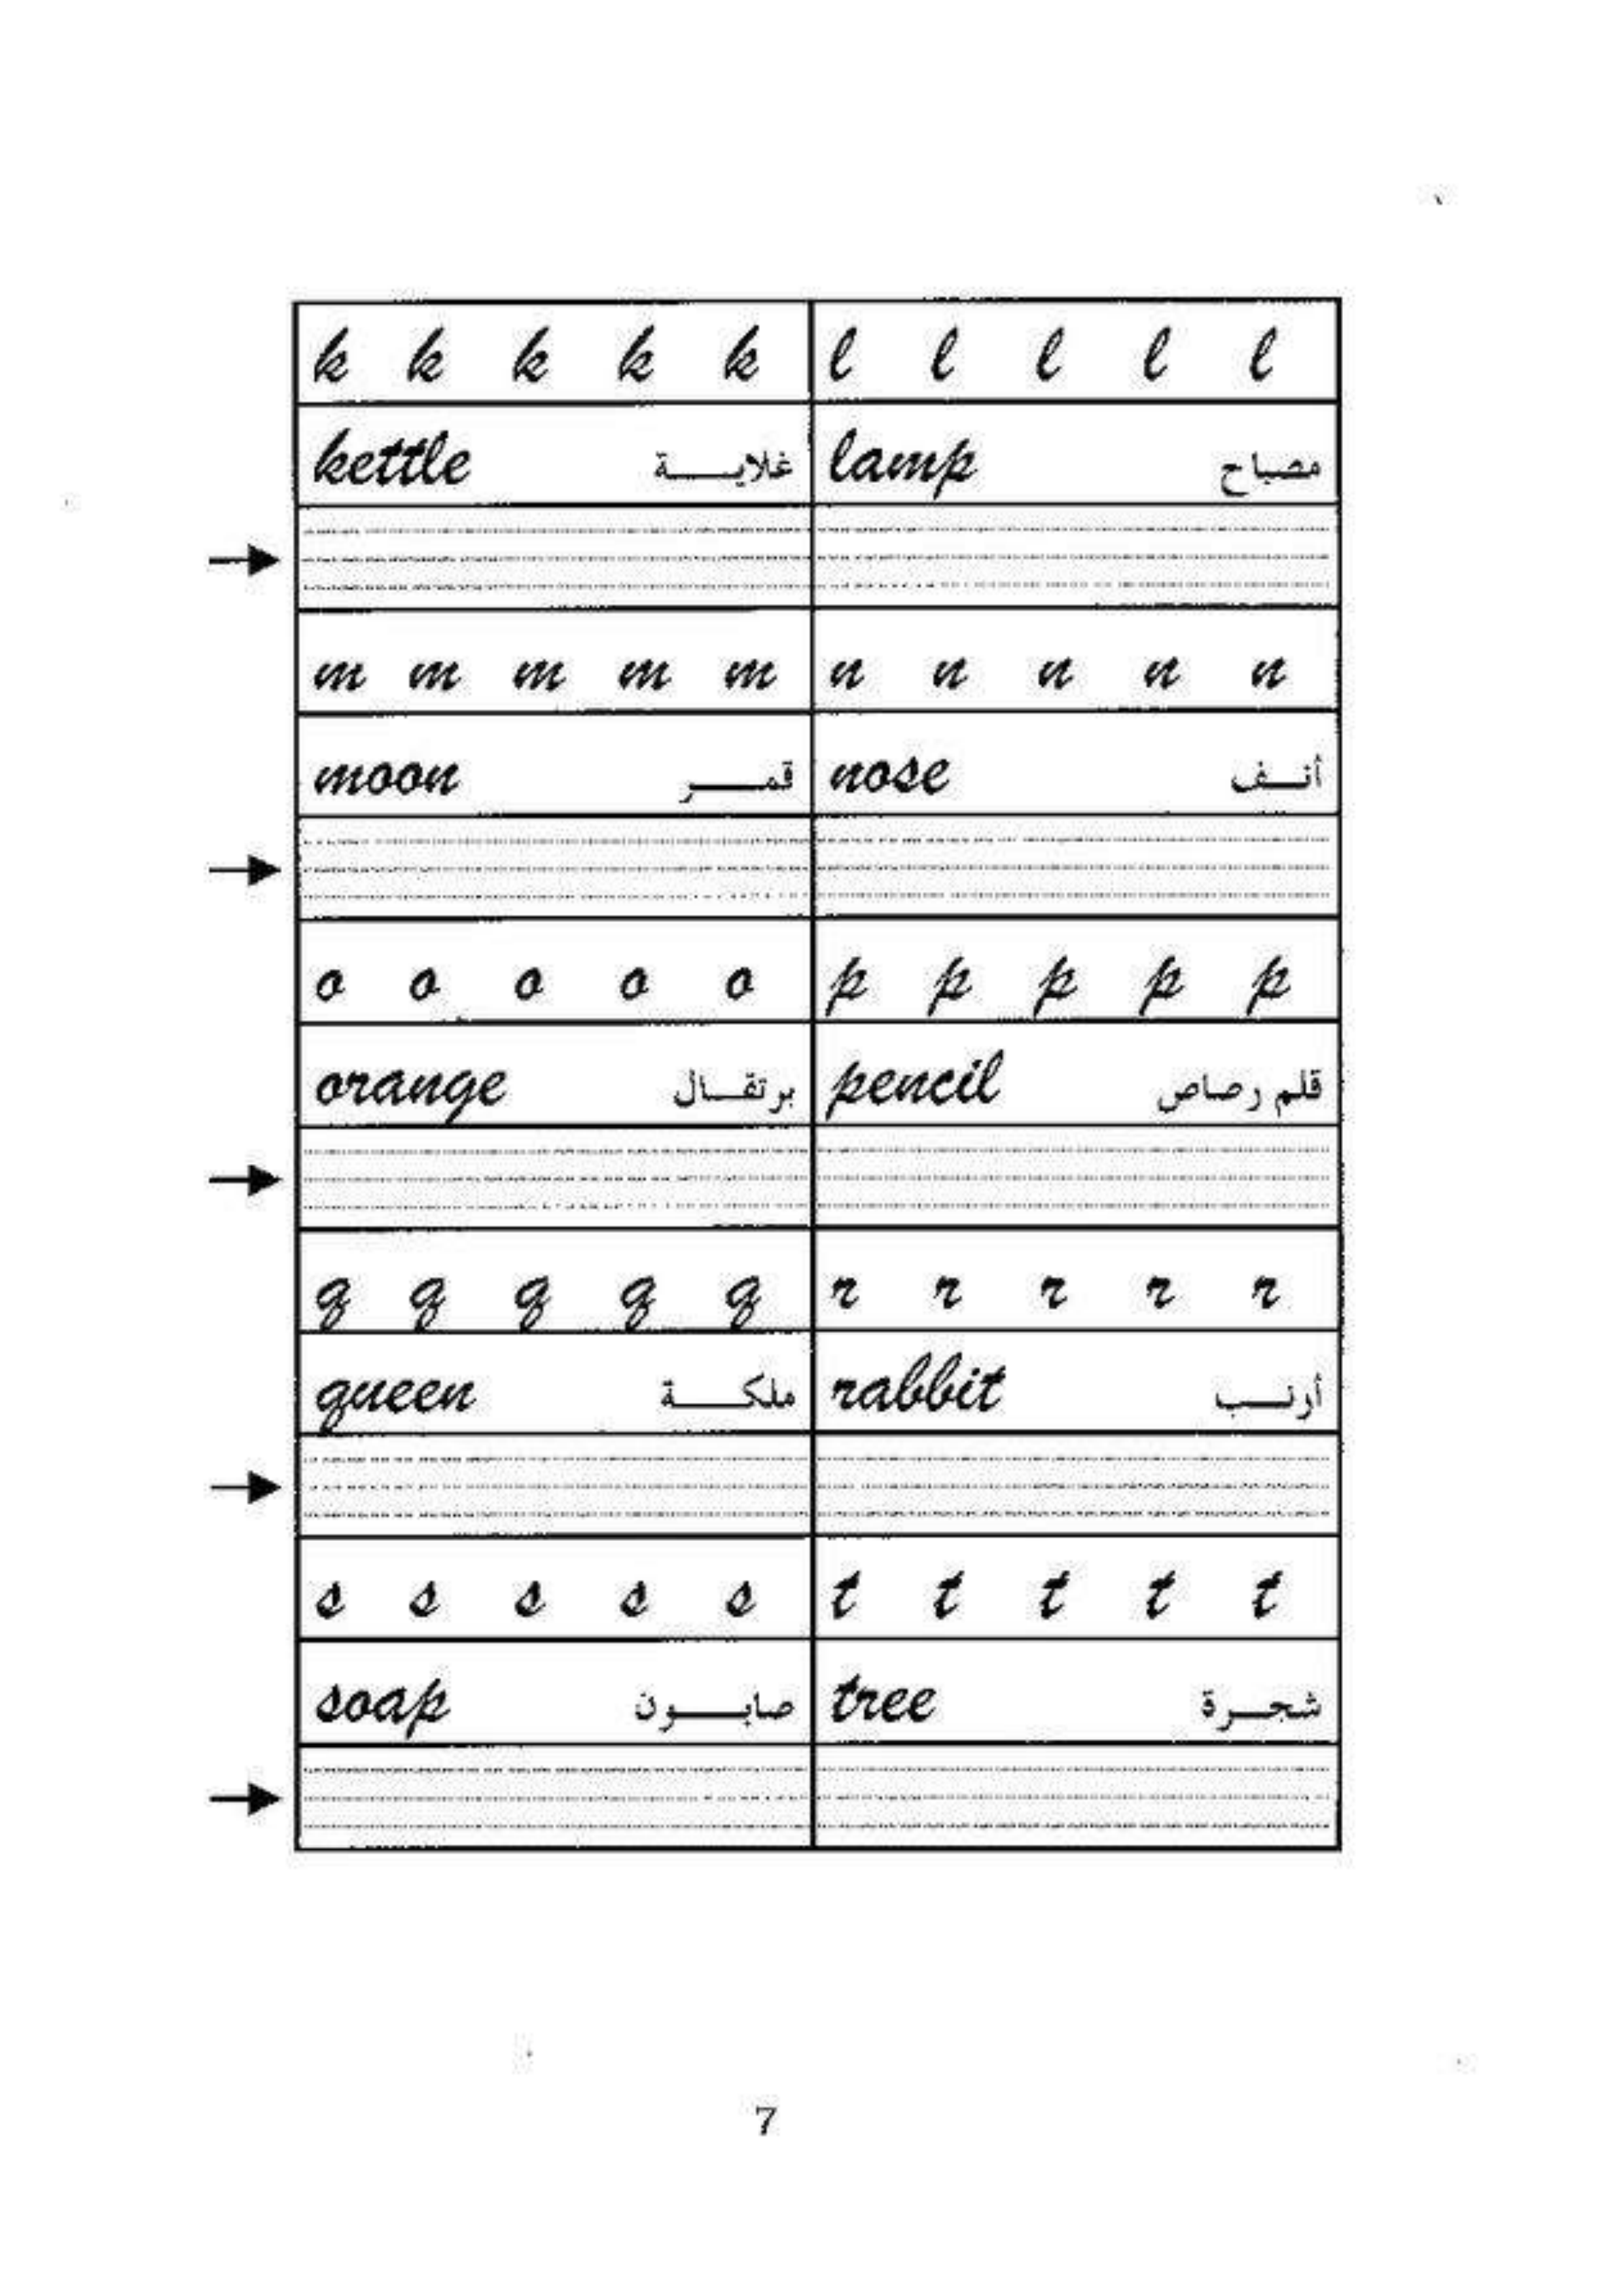 k k k k k l l l l l
kettle غلاية lamp مصباح
m m m m m n n n n n
moon قمر nose أنف
o o o o o p p p p p
orange برتقال pencil قلم رصاص
q q q q q r r r r r
queen ملكة rabbit أرنب
s s s s s t t t t t
soap صابون tree شجرة
7